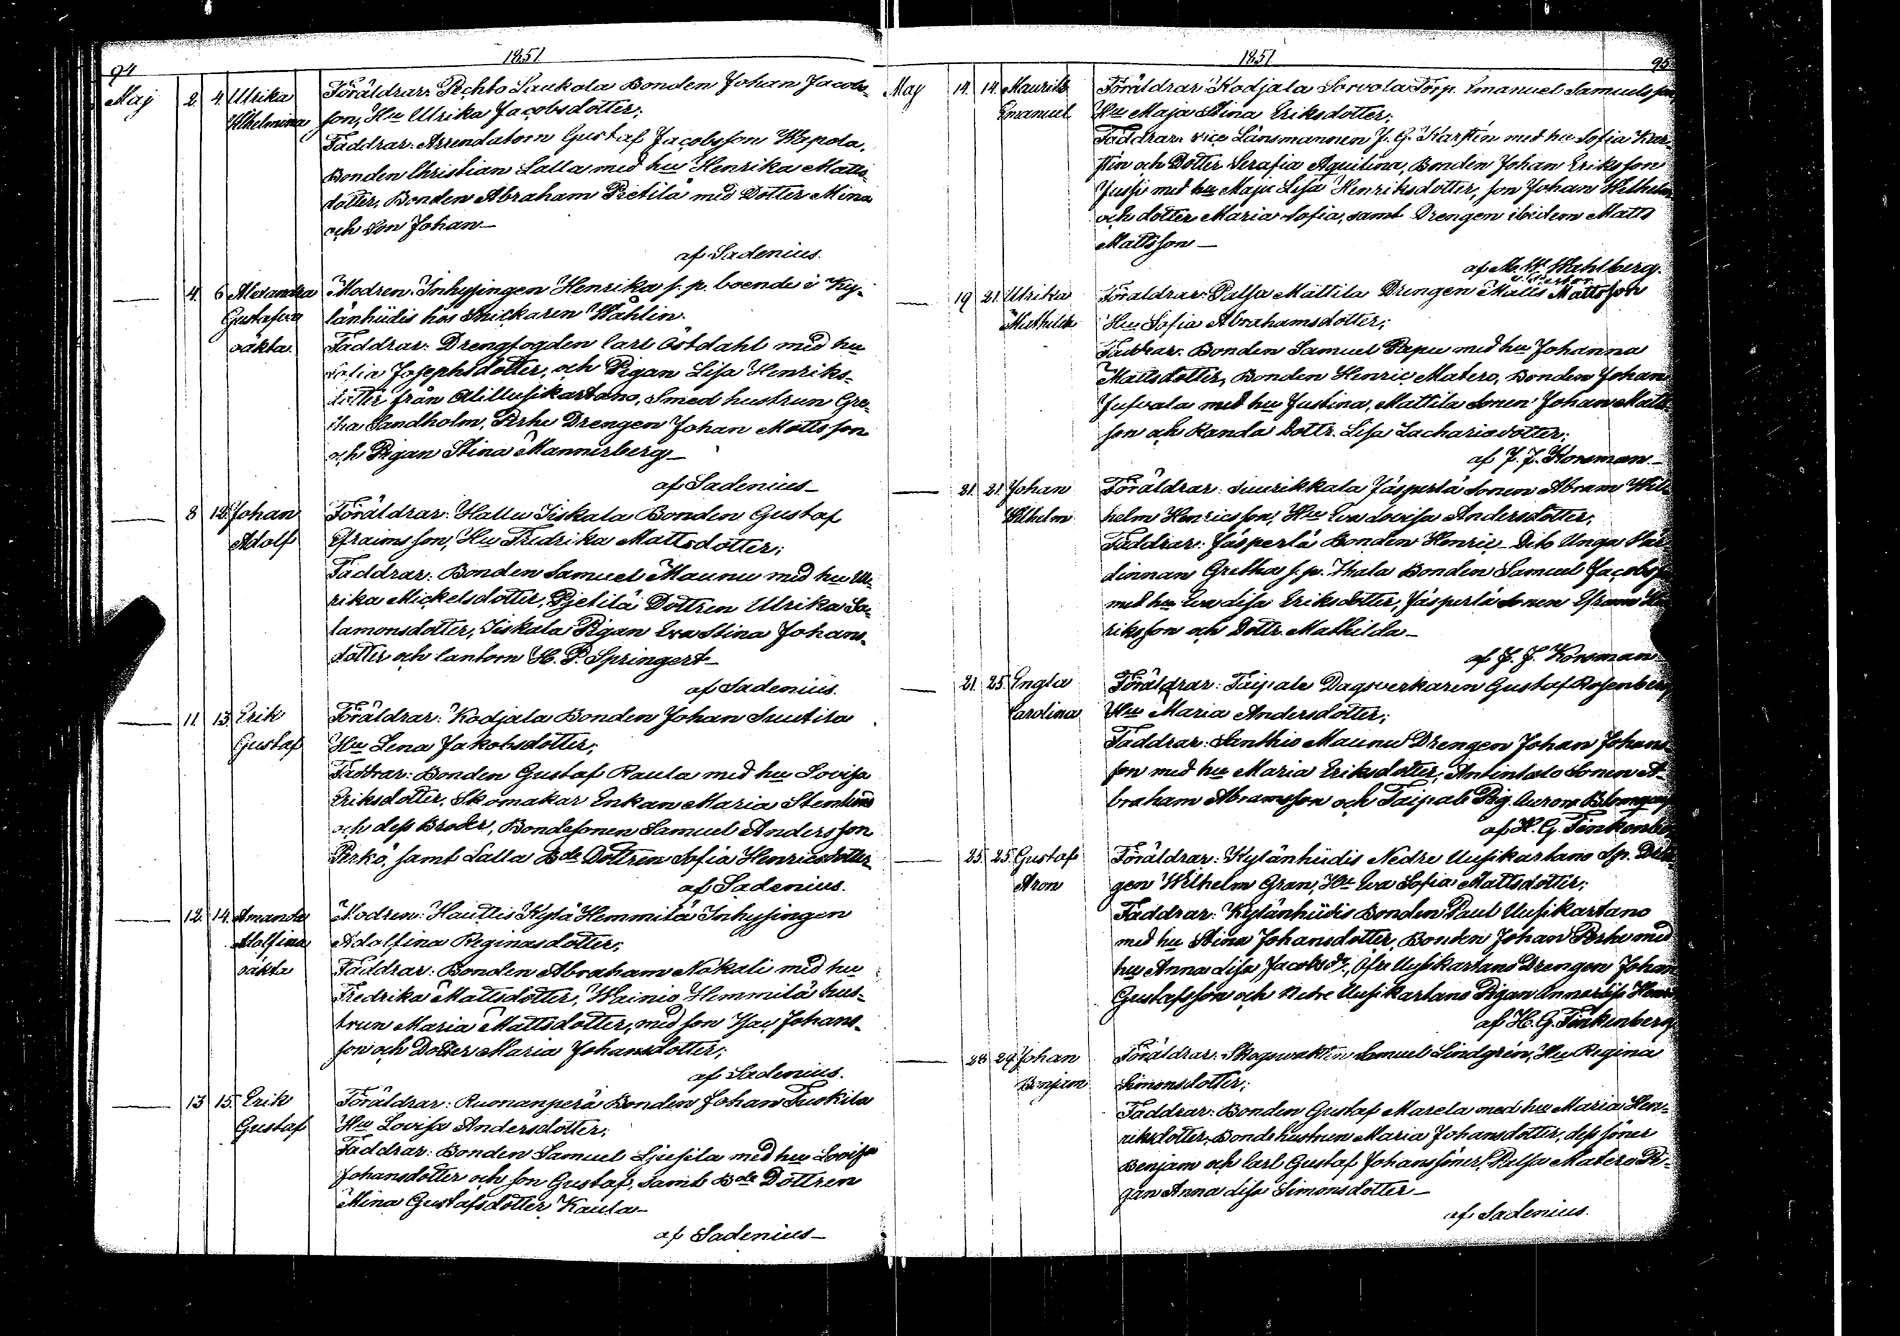 94
1851
Maj 2. 4. Ulrika Wilhelmina
Föräldrar: Pechto Laukola Bonden Johan Jacobs-
son, Hu Ulrika Jacobsdotter;
Faddrar: Arrendatorn Gustaf Jacobsson Wepola,
Bonden Christian Lalla med hu Henrika Matts-
dotter, Bonden Abraham Pietilä med Dotter Mina
och Son Johan—
af Sadenius.
— 4. 6. Alexandra Gustafva oäkta
Modren: Inhysingen Henrika s. p. boende i Ky-
länhiidis hos Snickaren Wåhlin.
Faddrar: Drengfogden Carl Östdahl med hu
Sofia Josephsdotter, och Pigan Lisa Henriks-
dotter från Alillusikartano, Smed hustrun Gre-
tha Sandholm, Perhe Drengen Johan Mattsson
och Pigan Stina Mannerberg—
af Sadenius—
— 8 12. Johan Adolf
Föräldrar: Hallu Iiskala Bonden Gustaf
Efraimsson, Hu Fredrika Mattsdotter;
Faddrar: Bonden Samuel Maunu med hu Ul-
rika Mickelsdotter, Pjetilä Dottren Ulrika Sa-
lamonsdotter, Iiskala Pigan Eva Stina Johans-
dotter och Cantorn H. P. Springert—
af Sadenius.
— 11 13. Erik Gustaf
Föräldrar: Kodjala Bonden Johan Suutila
Hu Lena Jakobsdotter;
Faddrar: Bonden Gustaf Raula med hu Lovisa
Eriksdotter, Skomakar Enkan Maria Stenlund
och dess Broder, Bondesonen Samuel Andersson
Perkö, samt Lalla Bde Dottren Sofia Henricsdotter
af Sadenius.
— 12. 14. Amanda Adolfina oäkta
Modren: Hautlis Kylä Hemmilä Inhysingen
Adolfina Reginasdotter;
Faddrar: Bonden Abraham Nokali med hu
Fredrika Mattsdotter, Wainio Hemmilä hus-
trun Maria Mattsdotter, med son Isac Johans-
son och Dotter Maria Johansdotter;
af Sadenius.
— 13 15. Erik Gustaf
Föräldrar: Ruonanperä Bonden Johan Tuskila
Hu Lovisa Andersdotter;
Faddrar: Bonden Samuel Ljusila med hu Lovisa
Johansdotter och son Gustaf, samt Bde Dottren
Mina Gustafsdotter Kaula—
af Sadenius—
1851
95
Maj 14. 14. Maurits Emanuel
Föräldrar: Kodjala Sorvola Torp. Emanuel Samuelsson
Hu Maja Stina Eriksdotter;
Faddrar: vice Länsmannen J. G. Karstén med hu Sofia Kar-
stén och Dotter Serafia Aquilina, Bonden Johan Eriksson
Jussi med hu Maja Lisa Henriksdotter, son Johan Wilhelm
och dotter Maria Sofia, samt Drengen ibidem Matts
Mattsson—
af M. W. Wahlberg.
— 19 21. Ulrika Mathilda
Föräldrar: Palsa Mattila Drengen Matts Mattsson
Hu Sofia Abrahamsdotter;
Faddrar: Bonden Samuel Papu med hu Johanna
Mattsdotter, Bonden Henric Matero, Bonden Johan
Jusvala med hu Justina, Mattila Sonen Johan Matts-
son och Randa Dottr. Lisa Zachariadotter;
af J. J. Konsman—
— 21. 21. Johan Wilhelm
Föräldrar: Suurikkala Jäsperlä Sonen Abram Wil-
helm Henricsson, Hu Eva Lovisa Andersdotter;
Faddrar: Jäsperlä Bonden Henric Dito Unga Vär-
dinnan Gretha s. p. Ihala Bonden Samuel Jacobsson
med hu Eva Lisa Eriksdotter, Jäsperlä Sonen Efraim Hen-
riksson och Dottr. Mathilda—
af J. J. Konsman—
— 21. 25. Engla Carolina
Föräldrar: Taipale Dagsverkaren Gustaf Rosenberg
Hu Maria Andersdotter;
Faddrar: Santhio Maunu Drengen Johan Johans-
son med hu Maria Eriksdotter, Antintalo Sonen A-
braham Abramsson och Taipale Pig. Aurora Blomqvist
af H. G. Tenkenberg
— 25. 25. Gustaf Aron
Föräldrar: Kylänhiidis Nedre Uusikartano Sp. Dren-
gen Wilhelm Gran, Hu Eva Sofia Mattsdotter;
Faddrar: Kylänhiidis Bonden Paul Uusikartano
med hu Stina Johansdotter, Bonden Johan Perhe med
hu Anna Lisa Jacobsdr, Öfre Uusikartano Drengen Johan
Gustafsson och Nedre Uusikartano Pigan Anna Lisa
af H. G. Tenkenberg
— 28 29 Johan Benjam
Föräldrar: Skogswaktaren Samuel Lindgrén, Hu Regina
Simonsdotter;
Faddrar: Bonden Gustaf Marela med hu Maria Hen-
riksdotter, Bonde hustrun Maria Johansdotter, dess söner
Benjam och Carl Gustaf Johanssöner, Palsa Matero Pi-
gan Anna Lisa Simonsdotter—
af Sadenius.